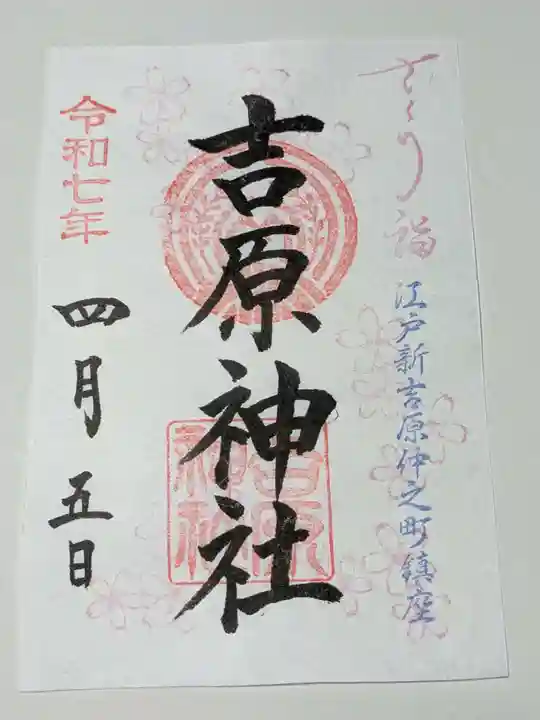 さくら福
江戸新吉原仲之町鎮座
吉原神社
吉原
神社
令和七年
四月五日